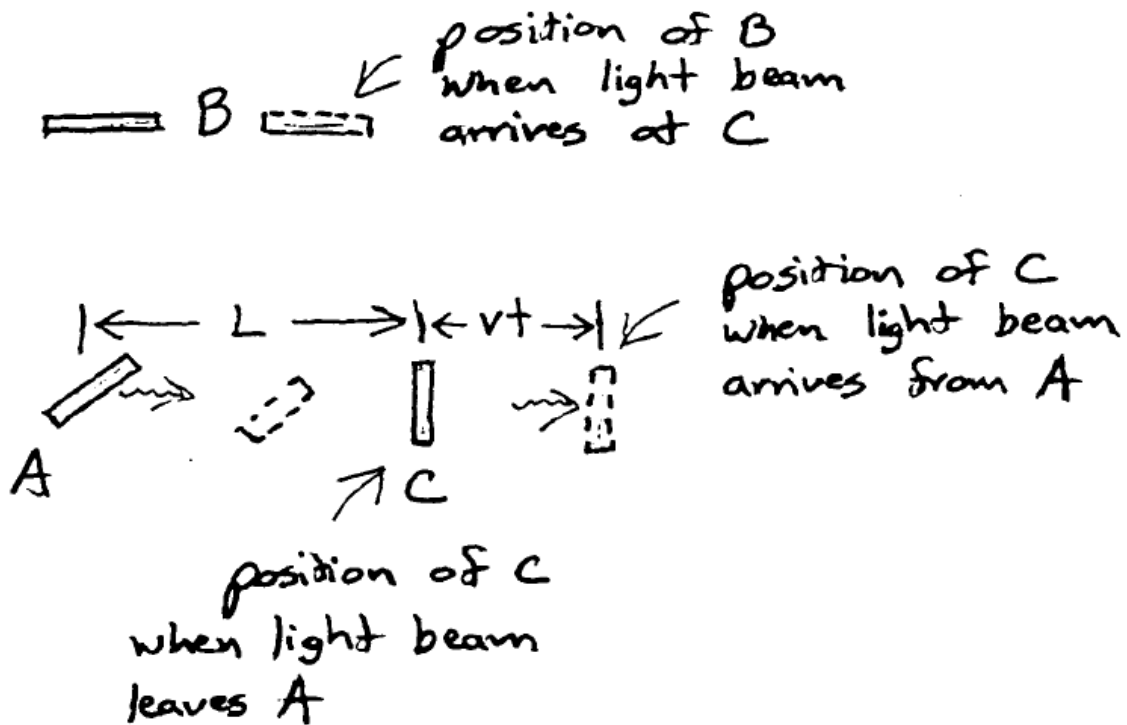 position of B
when light beam
arrives at C
B
L
vt
position of C
when light beam
arrives from A
A
C
position of C
when light beam
leaves A